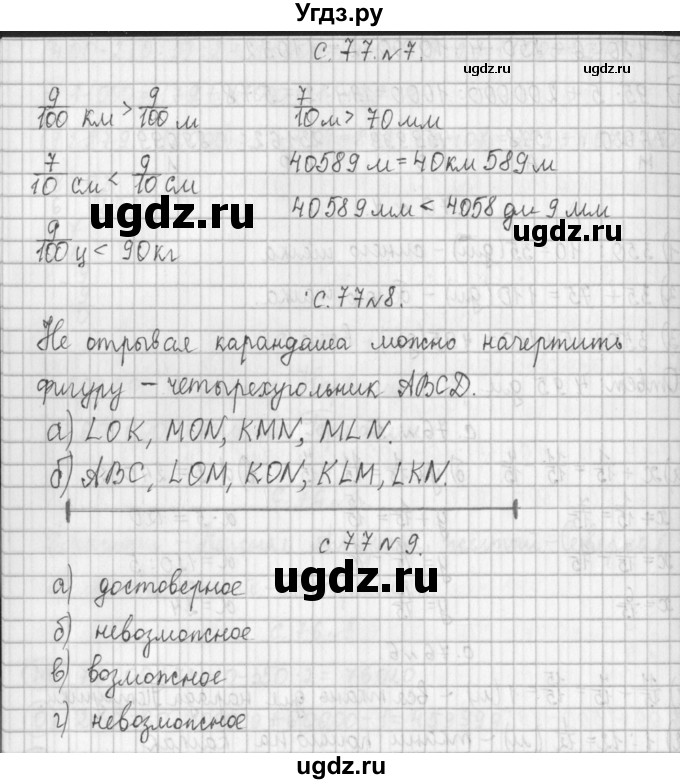 Угдз.ру
с. 77. №7.
ugdz.ru ugdz.ru
9/100 км > 9/100 м 7/10 м > 70 мм
7/10 см < 9/10 см 40589 м = 40 км 589 м
ugdz.ru 40589 мм < 4058 дм 9 мм
ugdz.ru
9/100 ц < 90 кг
с. 77 №8.
Не отрывая карандаша можно начертить
фигуру – четырехугольник ABCD.
а) LOK, MON, KMN, MLN.
б) ABC, LOM, KON, KLM, LKN.
с 77 №9.
ugdz.ru ugdz.ru
а) достоверное
б) невозможное
в) возможное
г) невозможное
ugdz.ru